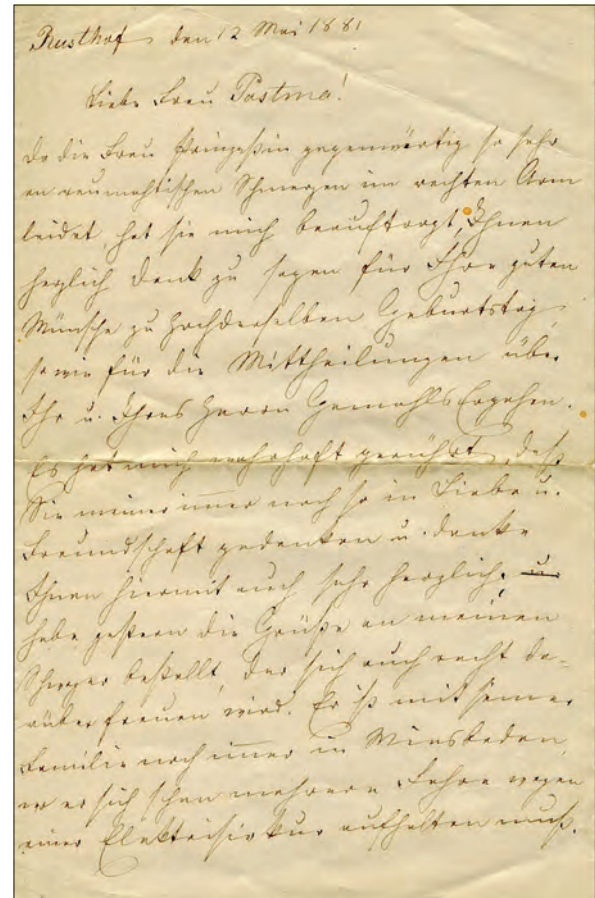 Rusthof, den 12 Mai 1881
Liebe Frau Postma!
Da die Frau Prinzeßin gegenwärtig so sehr
an reumatischen Schmerzen im rechten Arm
leidet, hat sie mich beauftragt, Ihnen
herzlich Dank zu sagen für Ihre guten
Wünsche zu Hochderselben Geburtstag,
so wie für die Mittheilungen über
Ihr u. Ihres Herrn Gemahls Ergehen.
Es hat mich wahrhaft gerührt, daß
Sie meiner immer noch so in Liebe u.
Freundschaft gedenken u. danke
Ihnen hiermit auch sehr herzlich, u.
habe gestern die Grüße an meinen
bestellt, der sich auch recht da-
rüber freuen wird. Er ist mit seiner
Familie noch immer in Wiesbaden,
wo er sich schon mehrere Jahre wegen
einer Elektrisirkur aufhalten muß.